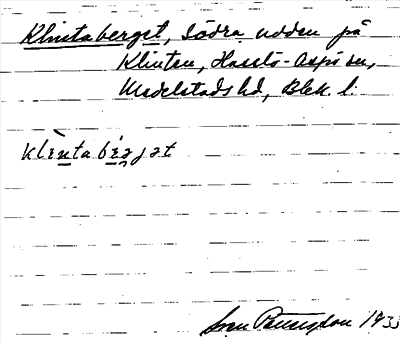 Klintaberget, södra udden på
Klinten, Hasslö-Aspö sn,
Medelstads hd, Blek. l.
klìntabé̢rjət
Sven Benson 1933